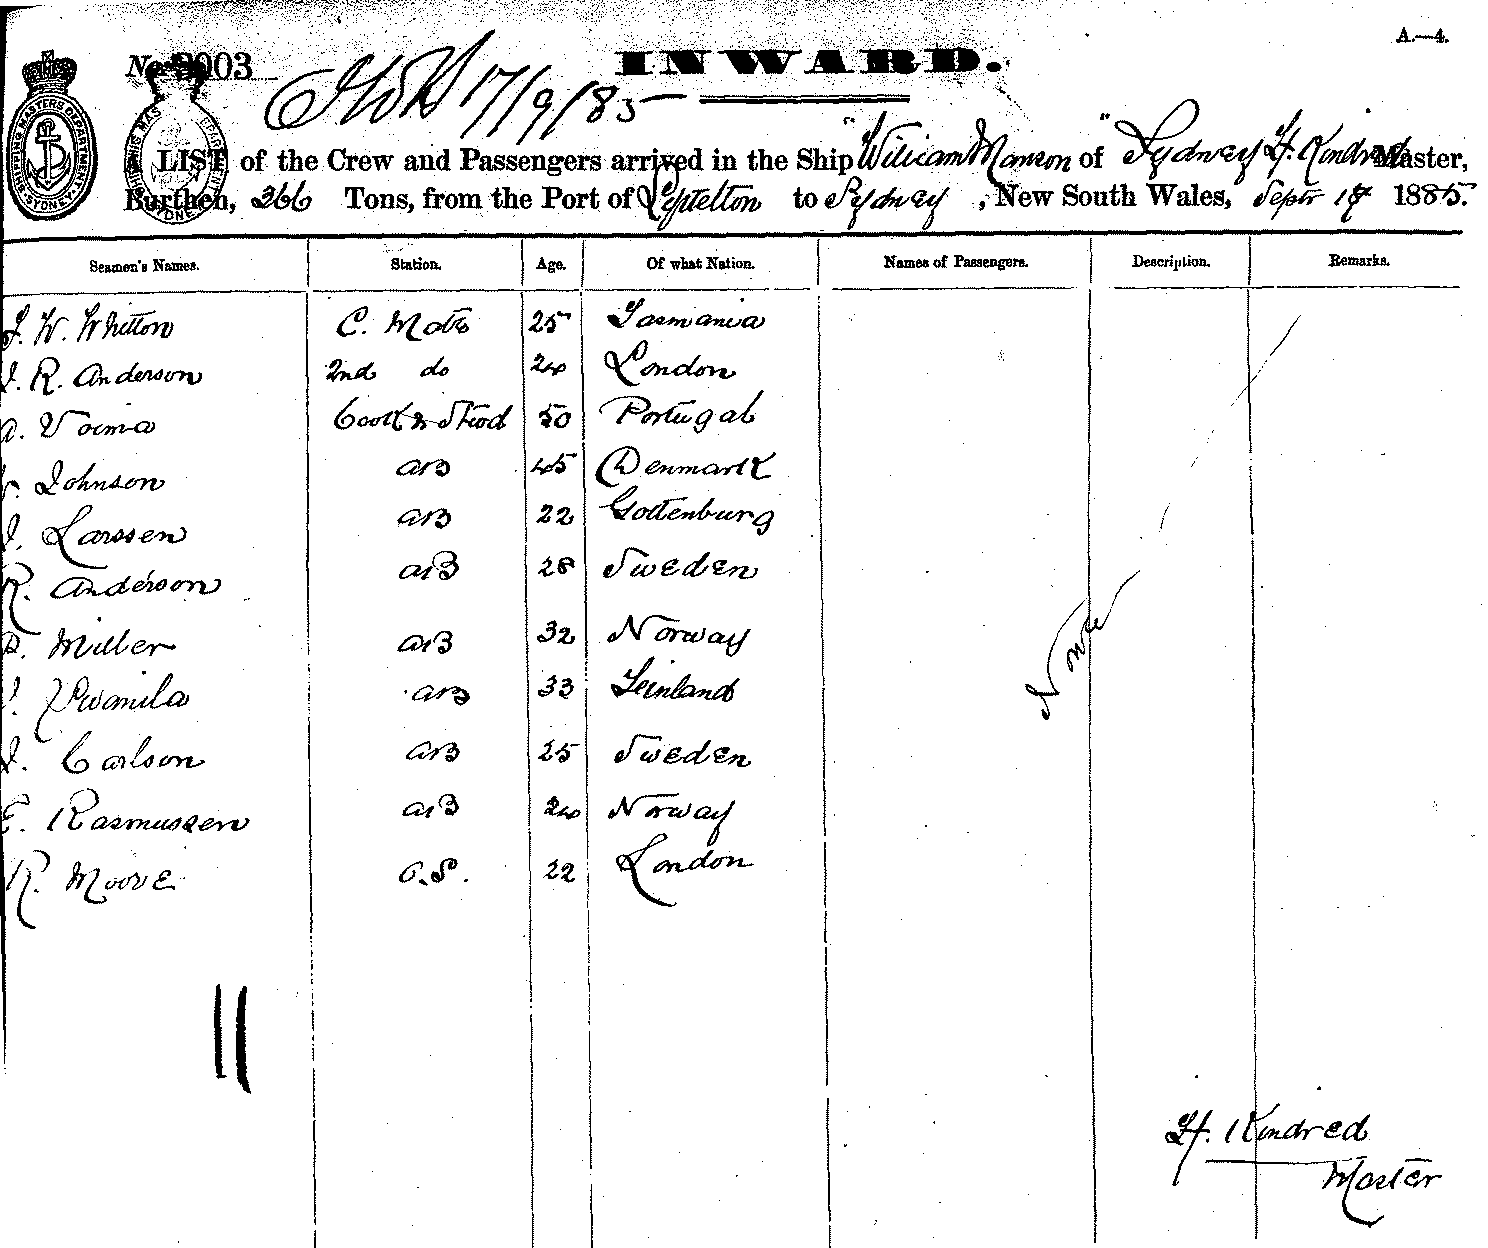 A.—4.
No. 3003
17/9/85
INWARD.
SHIPPING MASTERS DEPARTMENT SYDNEY
LIST of the Crew and Passengers arrived in the Ship "William Manson" of Sydney H. Kindred Master,
Burthen, 366 Tons, from the Port of Lyttelton to Sydney, New South Wales, Septr 17 1885.
Seamen's Names. Station. Age. Of what Nation. Names of Passengers. Description. Remarks.
W. Whitton C. Mate 25 Tasmania
J. R. Anderson 2nd do 24 London
A. Cook & Stwd 50 Portugal
Johnson AB 45 Denmark
J. Larssen AB 22 Gottenburg
R. Anderson AB 28 Sweden
Miller AB 32 Norway
AB 33 Feinland
J. Carlson AB 25 Sweden
E. Rasmussen AB 24 Norway
R. Moore O.S. 22 London
None
11
H. Kindred
Master